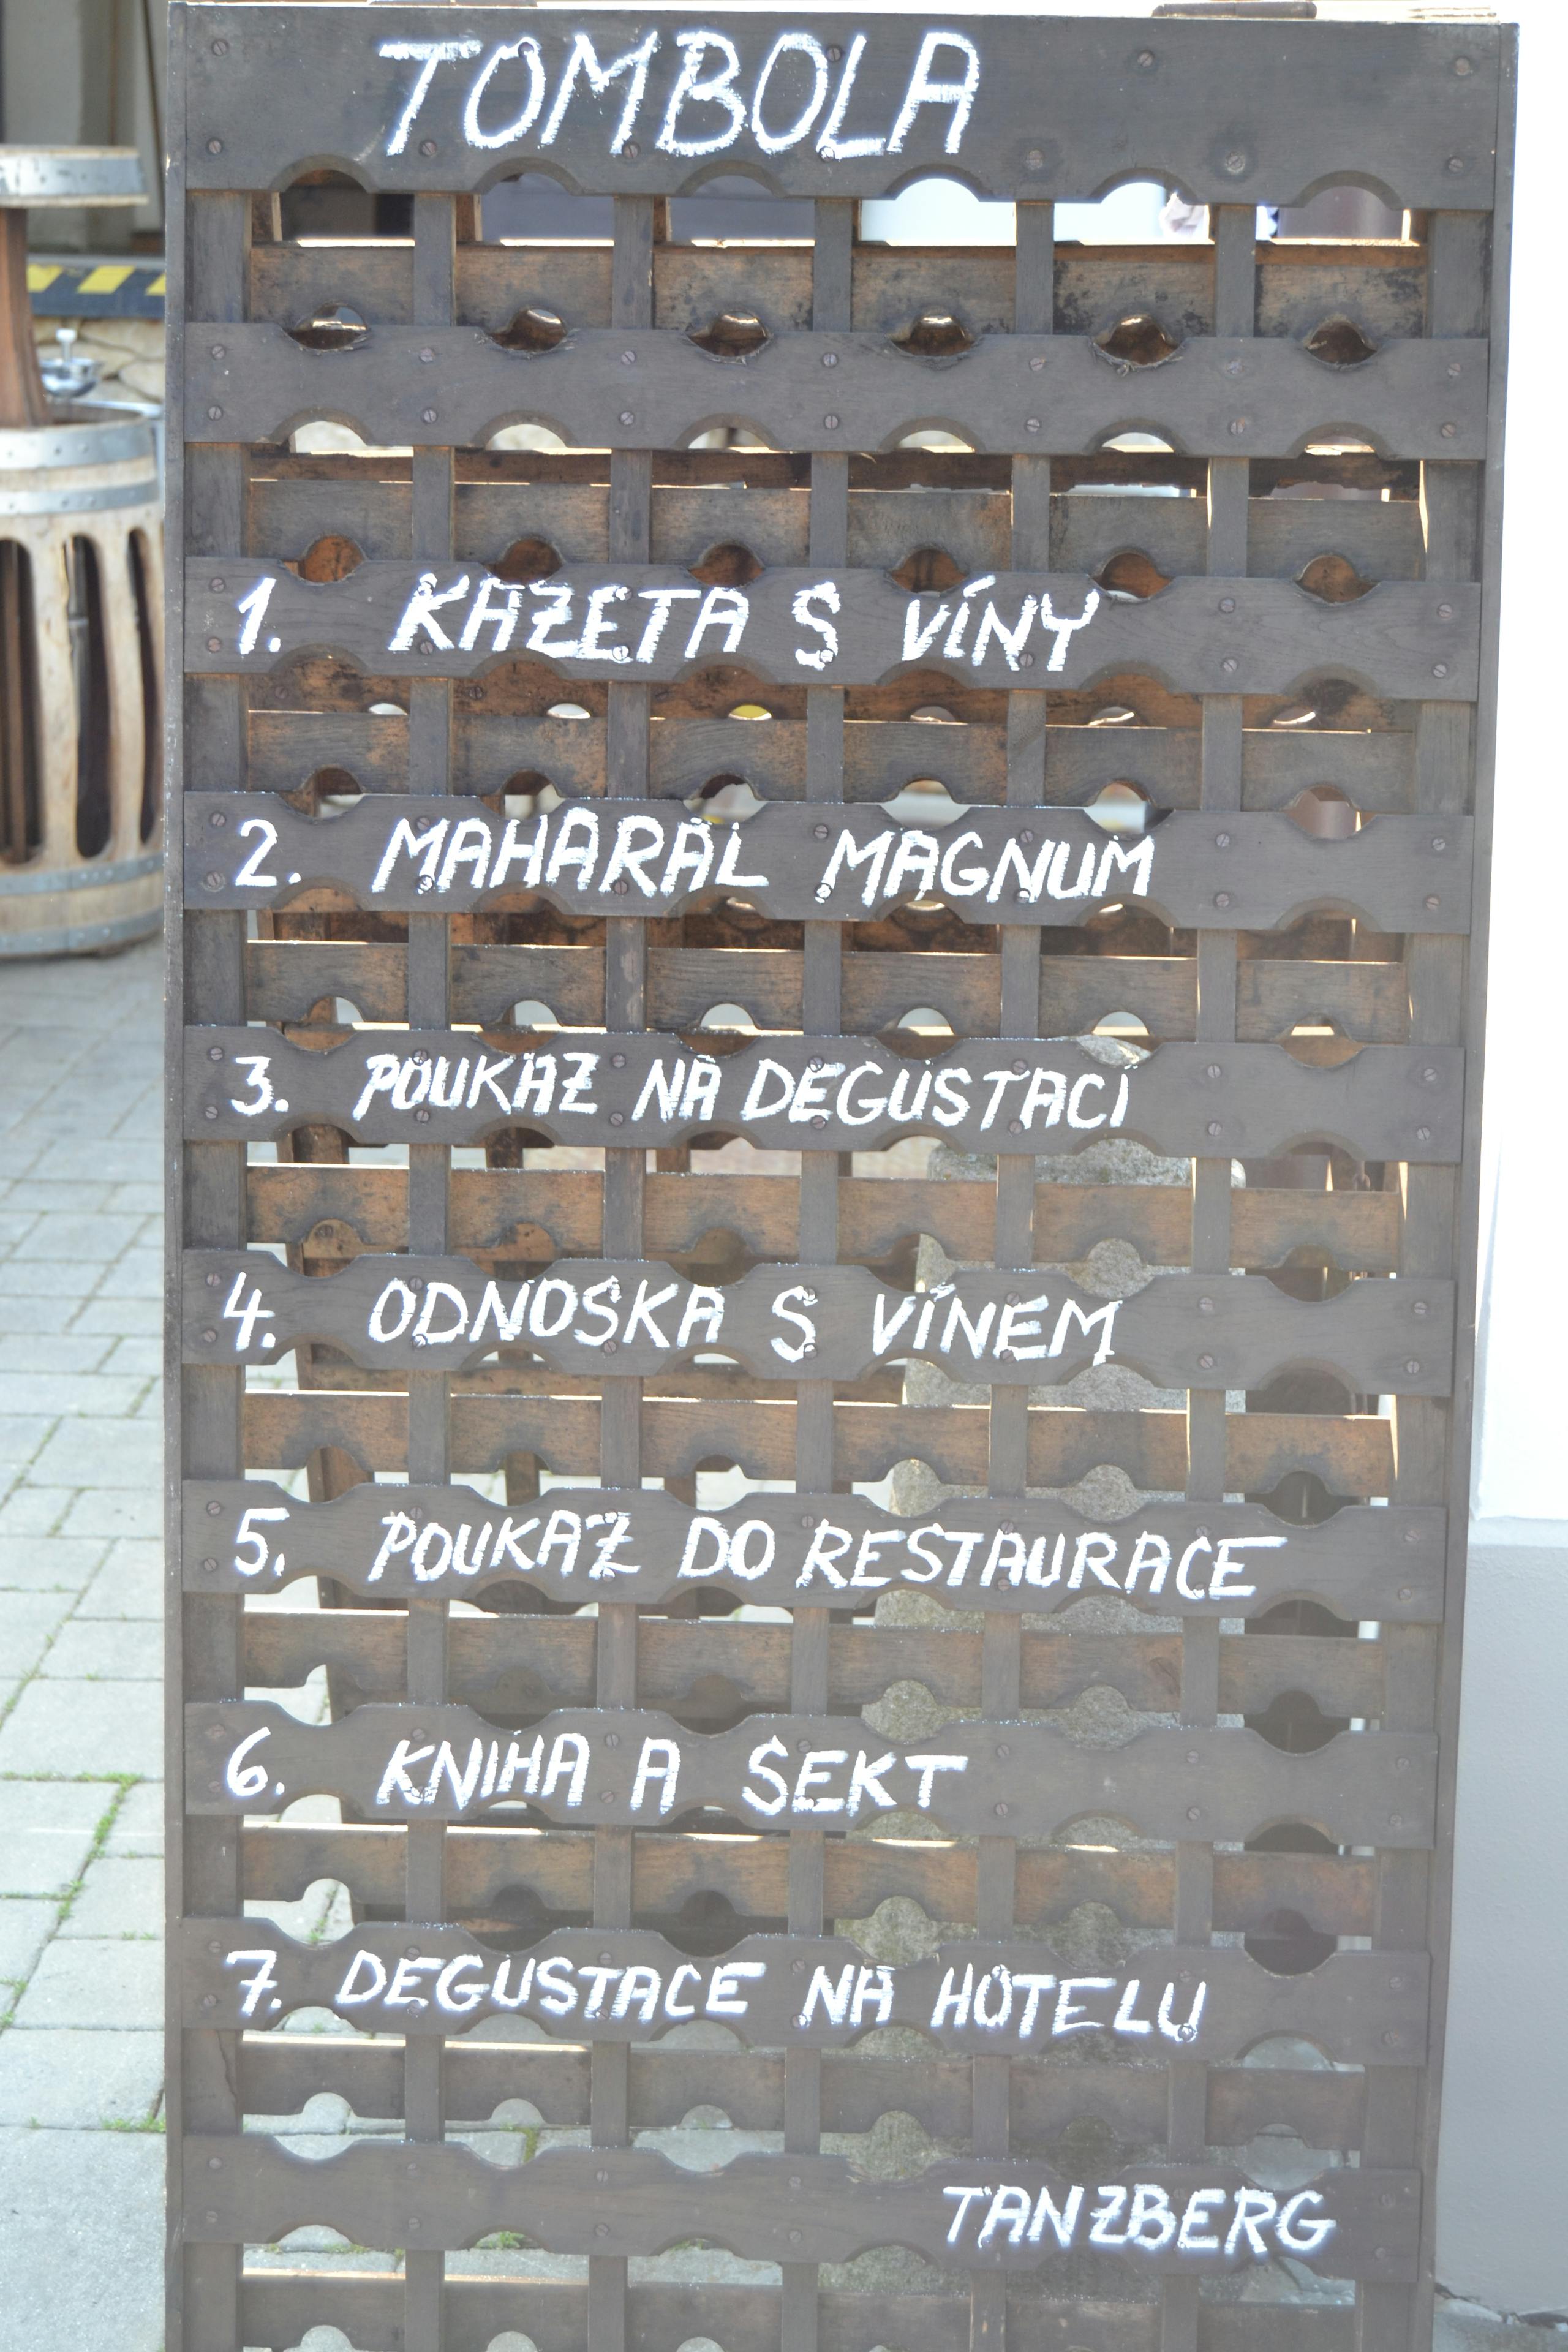 TOMBOLA
1. KAZETA S VÍNY
2. MAHARAL MAGNUM
3. POUKAZ NA DEGUSTACI
4. ODNOSKA S VÍNEM
5. POUKAZ DO RESTAURACE
6. KNIHA A SEKT
7. DEGUSTACE NA HOTELU
TANZBERG